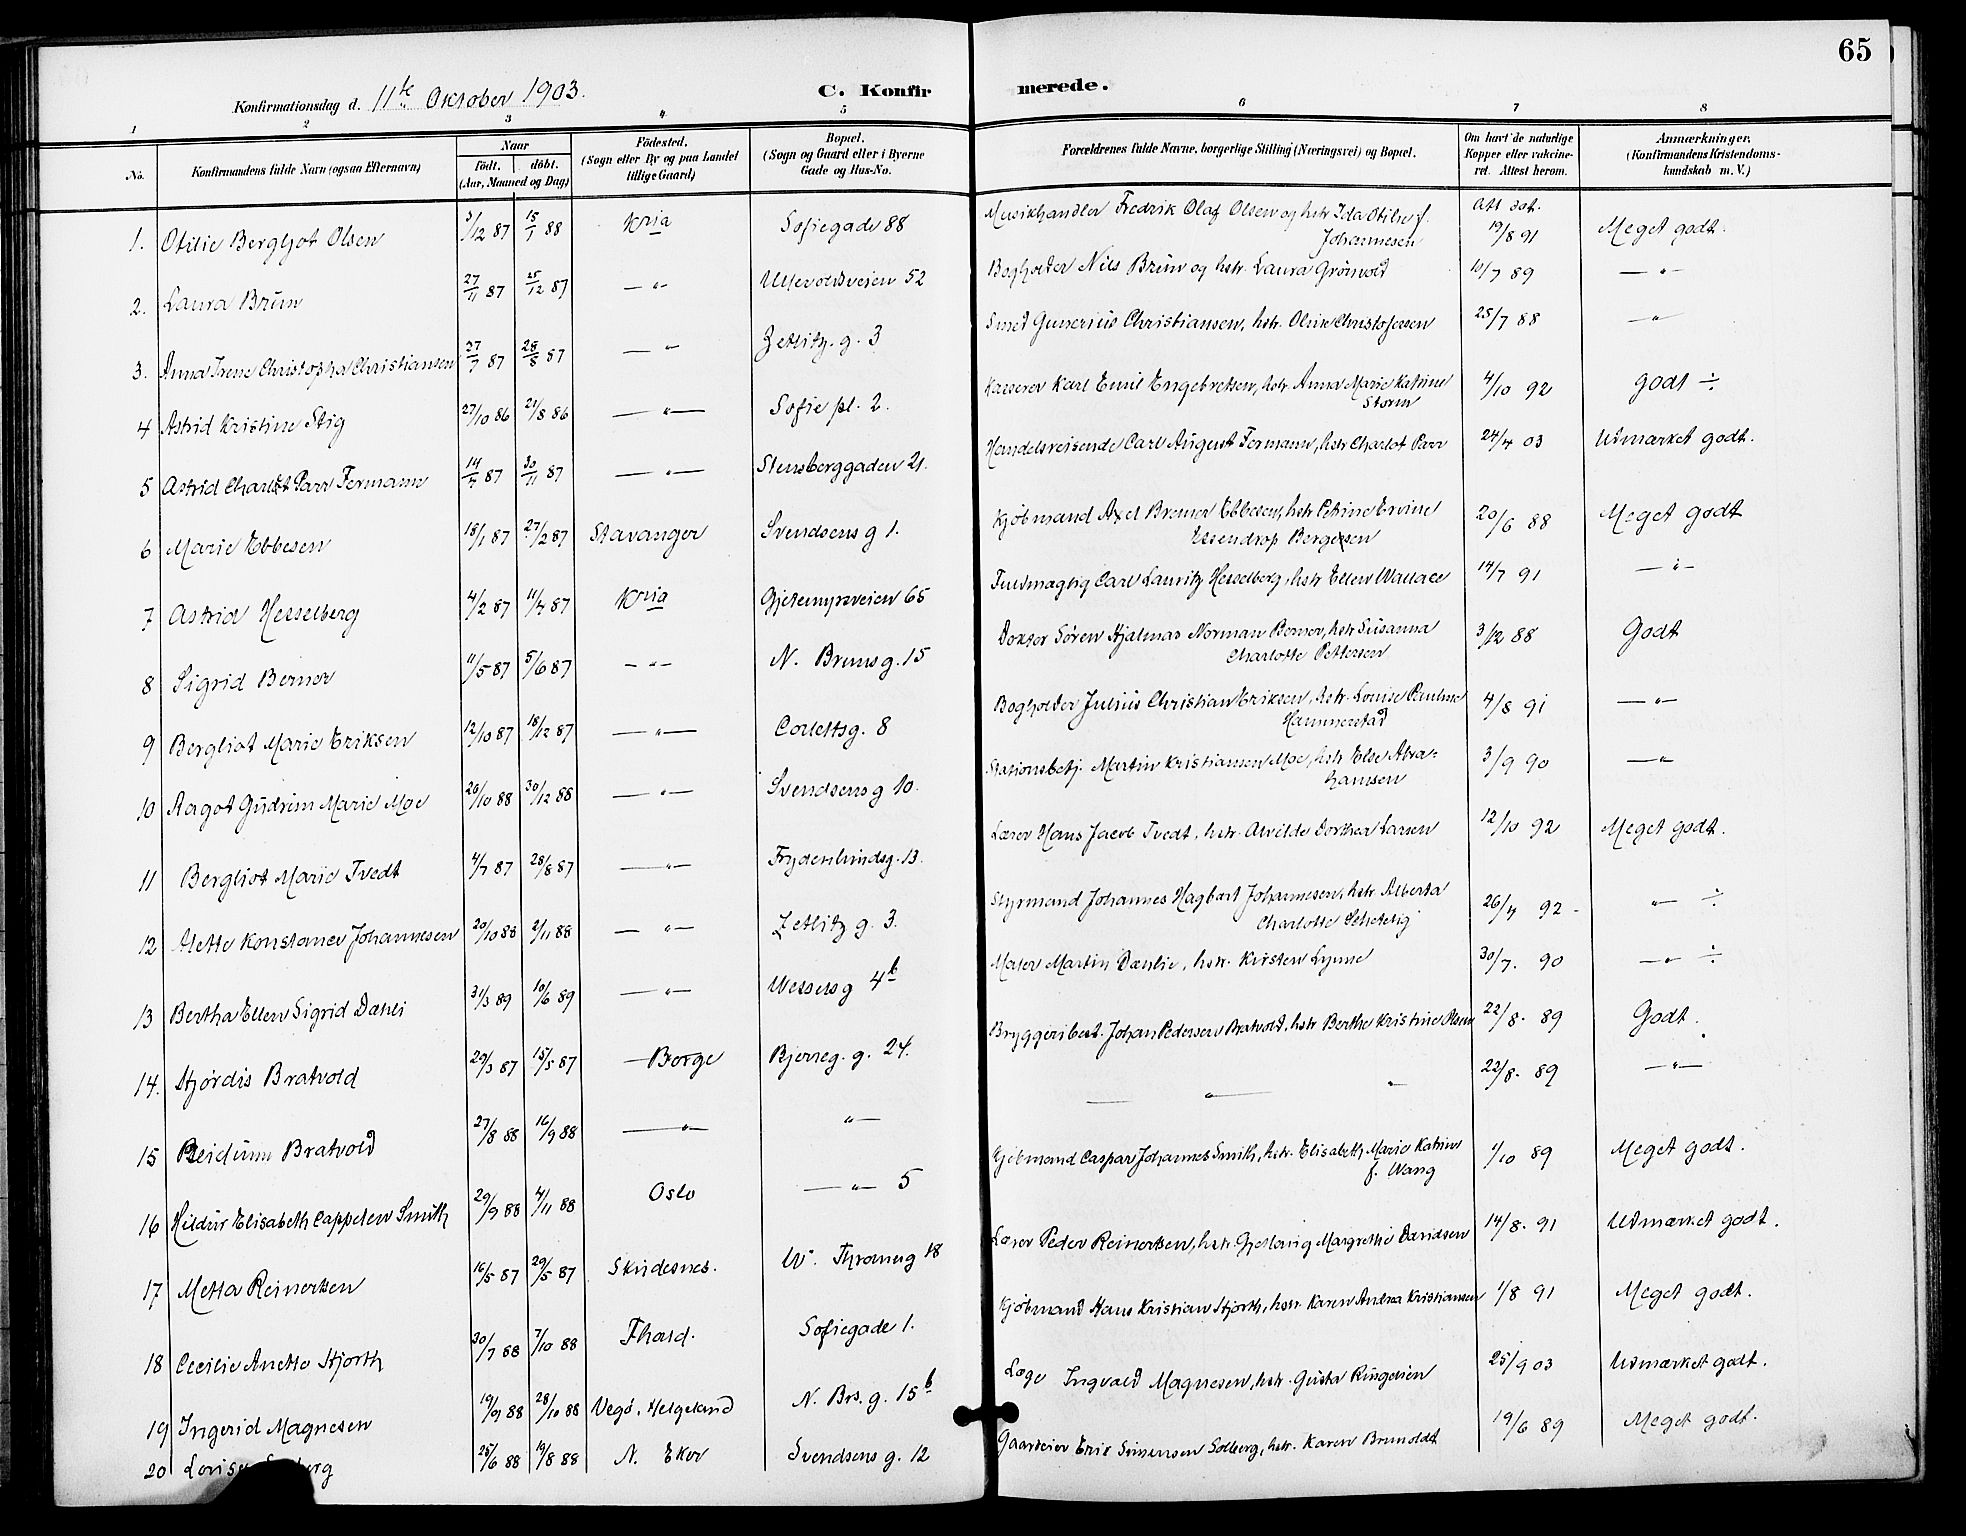 65
Konfirmationsdag d. 11te Oktober 1903.
C. Konfirmerede.
1 2 3 4 5 6 7 8
No. Konfirmandens fulde Navn (ogsaa Efternavn) Naar født. døbt. (Aar, Maaned og Dag) Fødested. (Sogn eller By og paa Landet tillige Gaard) Bopæl. (Sogn og Gaard eller i Byerne Gade og Hus-No. Forældrenes fulde Navne, borgerlige Stilling (Næringsvei) og Bopæl. Om havt de naturlige Kopper eller vakcineret. Attest herom. Anmærkninger. (Konfirmandens Kristendomskundskab m. V.)
1. Otilie Bergljot Olsen 3/12 87 15/1 88 Kria Sofiegade 88 Musikhandler Fredrik Olaf Olsen og hstr Ida Otilie f. Johannesen Att dat. 19/8 91 Meget godt.
2. Laura Brun 27/11 87 25/12 87 — " Ullevoldsveien 52 Bogholder Nils Brun og hstr. Laura Grönvold 10/7 89 — " —
3. Anna Irene Christopha Christiansen 27/7 87 28/8 87 — " Zetlitz. g. 3 Smed Gunerius Christiansen, hstr. Oline Christofersen 25/7 88 — "
4 Astrid Kristine Stig 27/10 86 21/8 86 — " — Sofie pl. 2. Kasserer Karl Emil Engebretsen, hstr. Anna Marie Katrine Storm 4/10 92 godt ÷
5 Astrid Charlot Parr Fermann 14/7 87 30/11 87 — " — Stensberggaden 21. Handelsreisende Carl August Fermann, hstr Charlot Parr 24/4 03 Udmærket godt.
6 Marie Ebbesen 18/1 87 27/2 87 Stavanger Svendsens g 1. Kjöbmand Axel Bremer Ebbesen, hstr Petrine Ervine Essendrop Bergersen 20/6 88 Meget godt
7 Astrid Hesselberg 4/2 87 11/4 87 Kria Gjetemyrsveien 65 Fuldmægtig Carl Lauritz Hesselberg, hstr Ellen Wallace 14/7 91 — " —
8 Sigrid Berner 11/5 87 5/6 87 — " — N. Bruns g. 15 Doktor Sören Hjalmar Norman Berner, hstr Susanna Charlotte Pettersen 3/12 88 Godt
9 Bergliot Marie Eriksen 12/10 87 18/12 87 — " — Collettsg. 8 Bogholder Julius Christian Eriksen, hstr. Louise Pauline Hammerstad 4/8 91 — " —
10 Aagot Gudrun Marie Moe 26/10 88 30/12 88 — " — Svendsens g 10. Stationsbetj. Martin Kristiansen Moe, hstr Else Abrahamsen 3/9 90 — "
11 Bergliot Marie Tvedt 4/7 87 28/8 87 — " — Frydenlundsg. 13. Lærer Hans Jacob Tvedt, hstr. Alvilde Dorthea Larsen 12/10 92 Meget godt.
12 Alette Konstance Johannesen 20/10 88 2/11 88 — " — Zetlitz g. 3. Styrmand Johannes Hagbart Johannesen, hstr Alberta Charlotte Schetelig 26/4 92 - — " — ÷
13 Bertha Ellen Sigrid Dæhli 31/3 89 10/6 89 — " — Wessels g 4b Maler Martin Dæhlie, hstr. Kirsten Lynne 30/7. 90 — " — ÷
14. Hjördis Bratvold 29/3 87 15/5 87 —Borge Bjerreg. g. 24. Bryggeribest. Johan Pedersen Bratvold, hstr Berthe Kristine Olsen 22/8. 89 Godt.
15 Reidunn Bratvold 27/8 88 16/9 88 — " — — " — — " — " 22/8. 89 — " —
16 Hildur Elisabeth Cappelen Smith 29/9 88 4/11 88 Oslo — " — 5 Kjöbmand Caspar Johannes Smith, hstr. Elisabeth Marie Katrine f. Wang 1/10 89 Meget godt.
17 Metta Reinertsen 16/5 87 29/5 87 Skudesnes. W. Thranesg 18 Lærer Peder Reinertsen, hstr. Gjertrug Margrethe Davidsen 14/8. 91 Udmærket godt.
18 Cecilie Anette Hjorth 30/7 88 7/10 88 Fhald. Sofiegade 1. Kjöbmand Hans Kristian Hjorth, hstr. Karen Andrea Kristiansen 1/8 91 Meget godt.
19 Ingerid Magnesen 19/9 88 28/10 88 Vegö, Helgeland N. Brs. g. 15b Læge Ingvald Magnesen, hstr. Gusta Ringdien 25/9 03 Udmærket godt.
20 Lovise 25/6 88 19/8 88 N. Eker Svendsens g. 12 Gaardeier Erik Simensen Solberg, hstr. Karen Brunoldt 19/6 89 Meget godt.